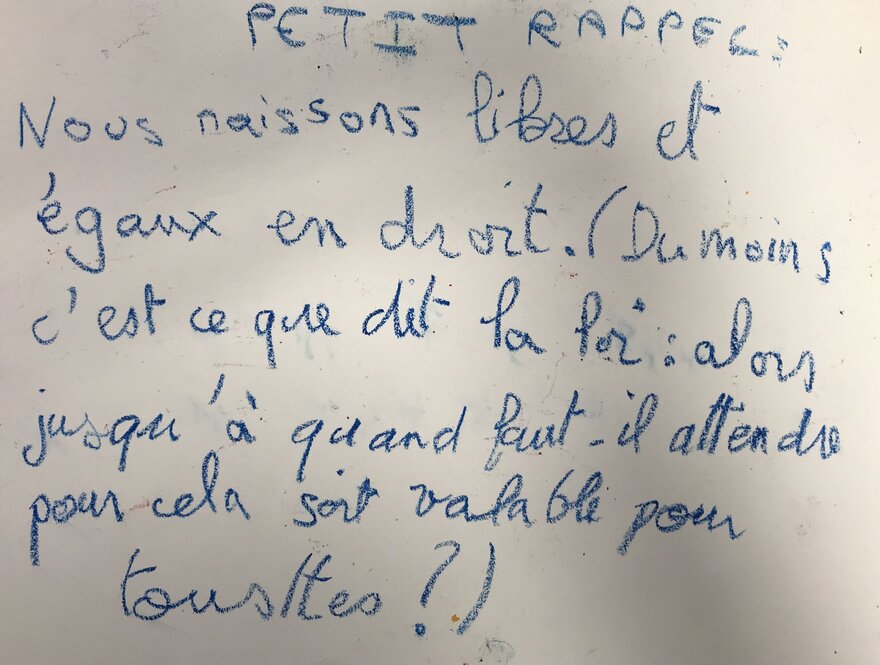 PETIT RAPPEL :
Nous naissons libres et
égaux en droit. (Du moins
c'est ce que dit la loi : alors
jusqu'à quand faut-il attendre
pour cela soit valable pour
tous/tes ?)